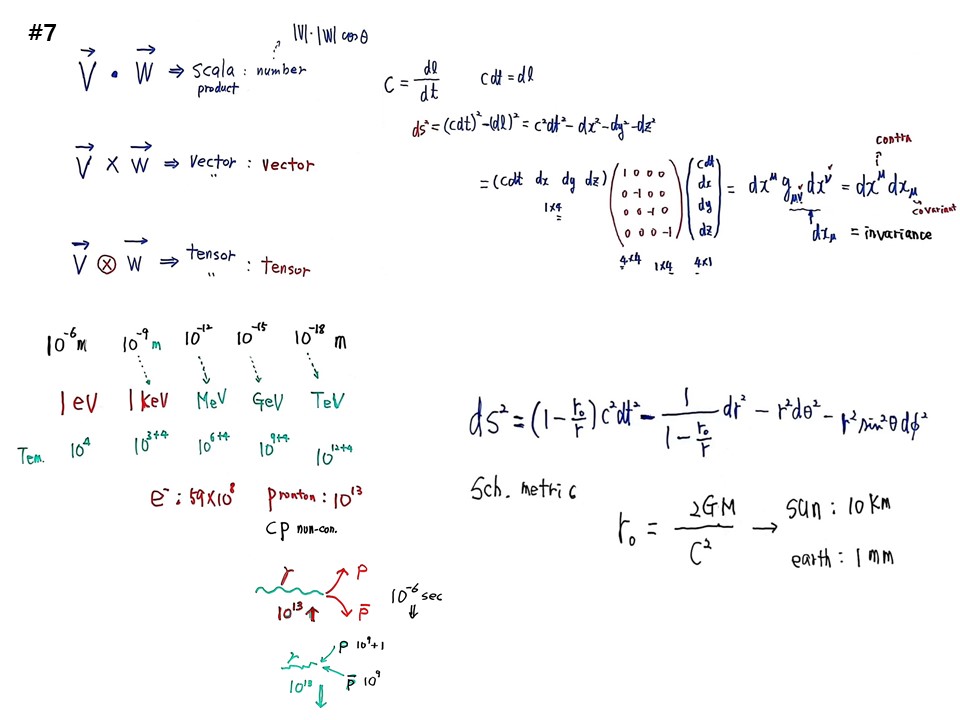 #7
|V|·|W| cos θ
V⃗ • W⃗ ⇒ scala : number
product
V⃗ × W⃗ ⇒ vector : vector
"
V⃗ ⊗ W⃗ ⇒ tensor : Tensor
"
C = dl/dt   cdt = dl
ds² = (cdt)² - (dl)² = c²dt² - dx² - dy² - dz²
= (cdt dx dy dz) (1 0 0 0 / 0 -1 0 0 / 0 0 -1 0 / 0 0 0 -1) (cdt / dx / dy / dz) = dx^μ g_μν dx^ν = dx^μ dx_μ
contra
covariant
1×4
dx_μ = invariance
4×4 1×4 4×1
10⁻⁶ m 10⁻⁹ m 10⁻¹² 10⁻¹⁵ 10⁻¹⁸ m
1 eV 1 KeV MeV GeV TeV
Tem. 10⁴ 10³⁺⁴ 10⁶⁺⁴ 10⁹⁺⁴ 10¹²⁺⁴
e⁻ : 59×10⁸ pronton : 10¹³
CP non-con.
r P
10¹³ ↑ P̄ 10⁻⁶ sec ↓
r P 10⁹+1
10¹³ ↓ P̄ 10⁹
ds² = (1 - r₀/r) c²dt² - 1/(1 - r₀/r) dr² - r²dθ² - r² sin²θ dϕ²
Sch. metric
r₀ = 2GM/C² → sun : 10 Km
earth : 1 mm